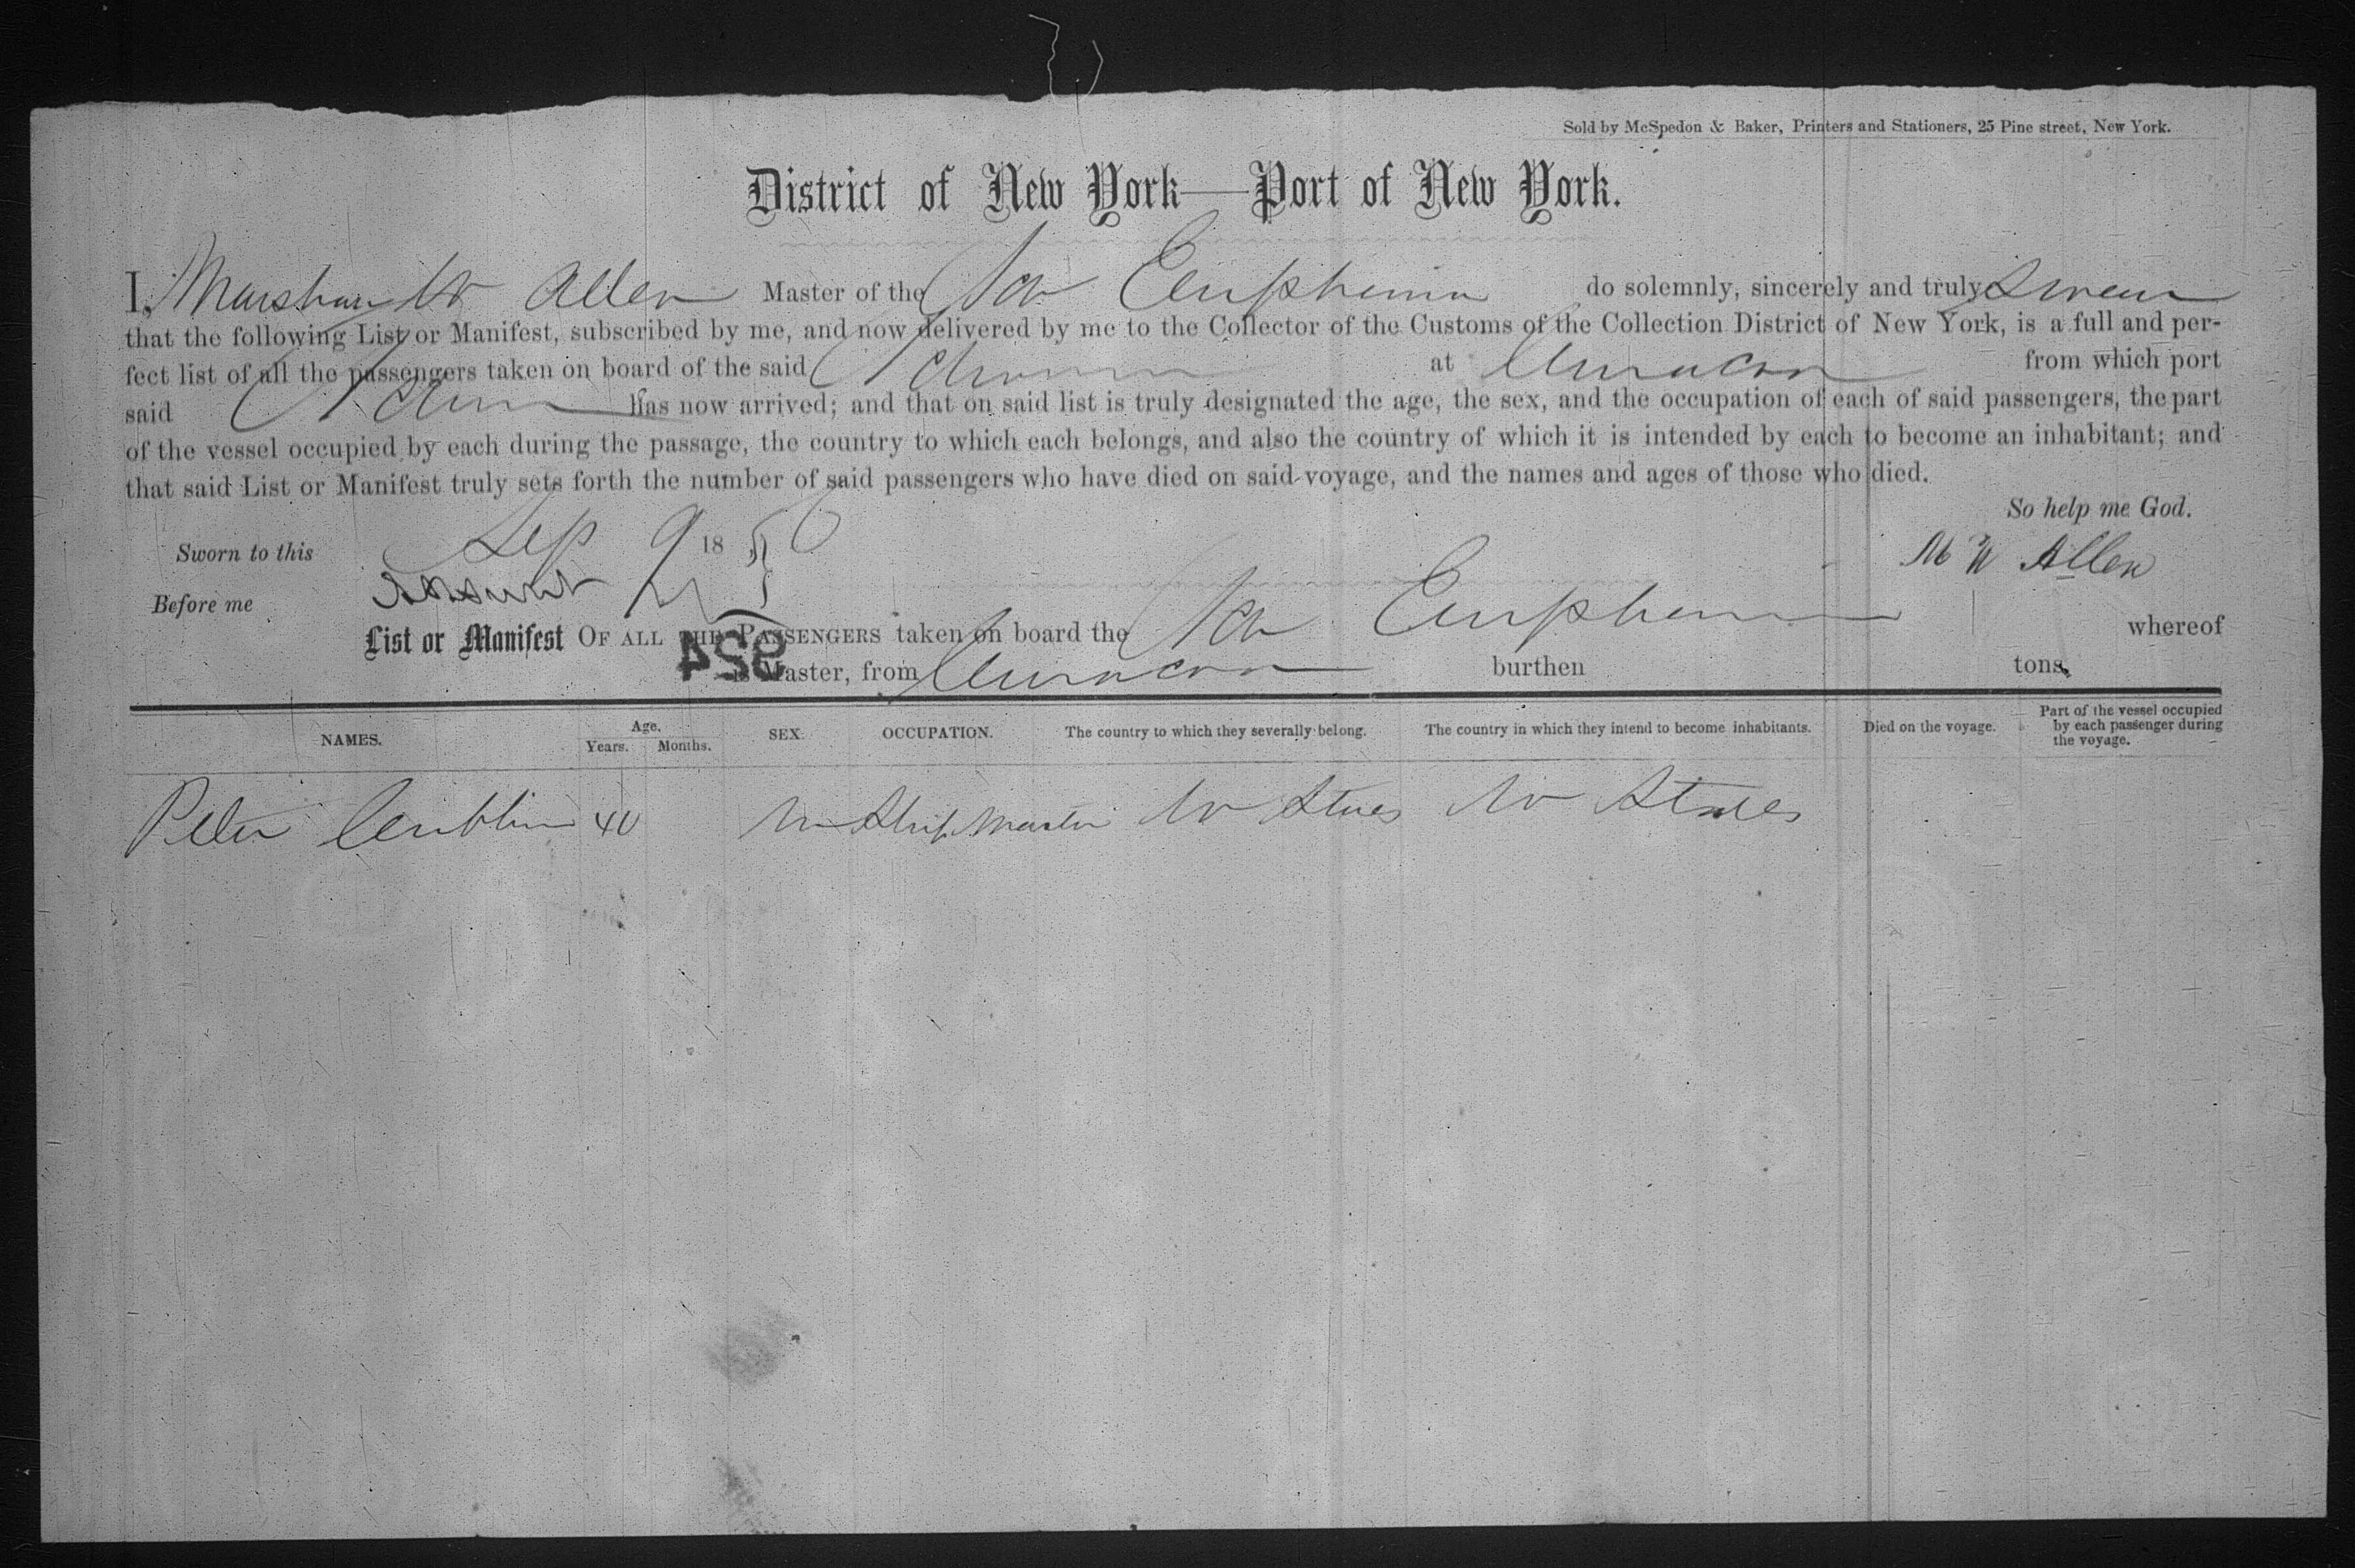 Sold by McSpedon & Baker, Printers and Stationers, 25 Pine street, New York.
District of New York—Port of New York.
I, Marshall W Allen Master of the Sch Euphemia do solemnly, sincerely and truly Swear
that the following List or Manifest, subscribed by me, and now delivered by me to the Collector of the Customs of the Collection District of New York, is a full and per-
fect list of all the passengers taken on board of the said Schooner at Curacoa from which port
said Schr has now arrived; and that on said list is truly designated the age, the sex, and the occupation of each of said passengers, the part
of the vessel occupied by each during the passage, the country to which each belongs, and also the country of which it is intended by each to become an inhabitant; and
that said List or Manifest truly sets forth the number of said passengers who have died on said voyage, and the names and ages of those who died.
So help me God.
Sworn to this Sep 9 1856
M W Allen
Before me
List or Manifest OF ALL THE PASSENGERS taken on board the Sch Euphemia whereof
924
is Master, from Curacoa burthen tons.
NAMES. Age. Years. Months. SEX. OCCUPATION. The country to which they severally belong. The country in which they intend to become inhabitants. Died on the voyage. Part of the vessel occupied by each passenger during the voyage.
Peter 40 m Ship Master U States U States